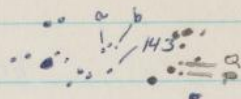 a b
143
a
p